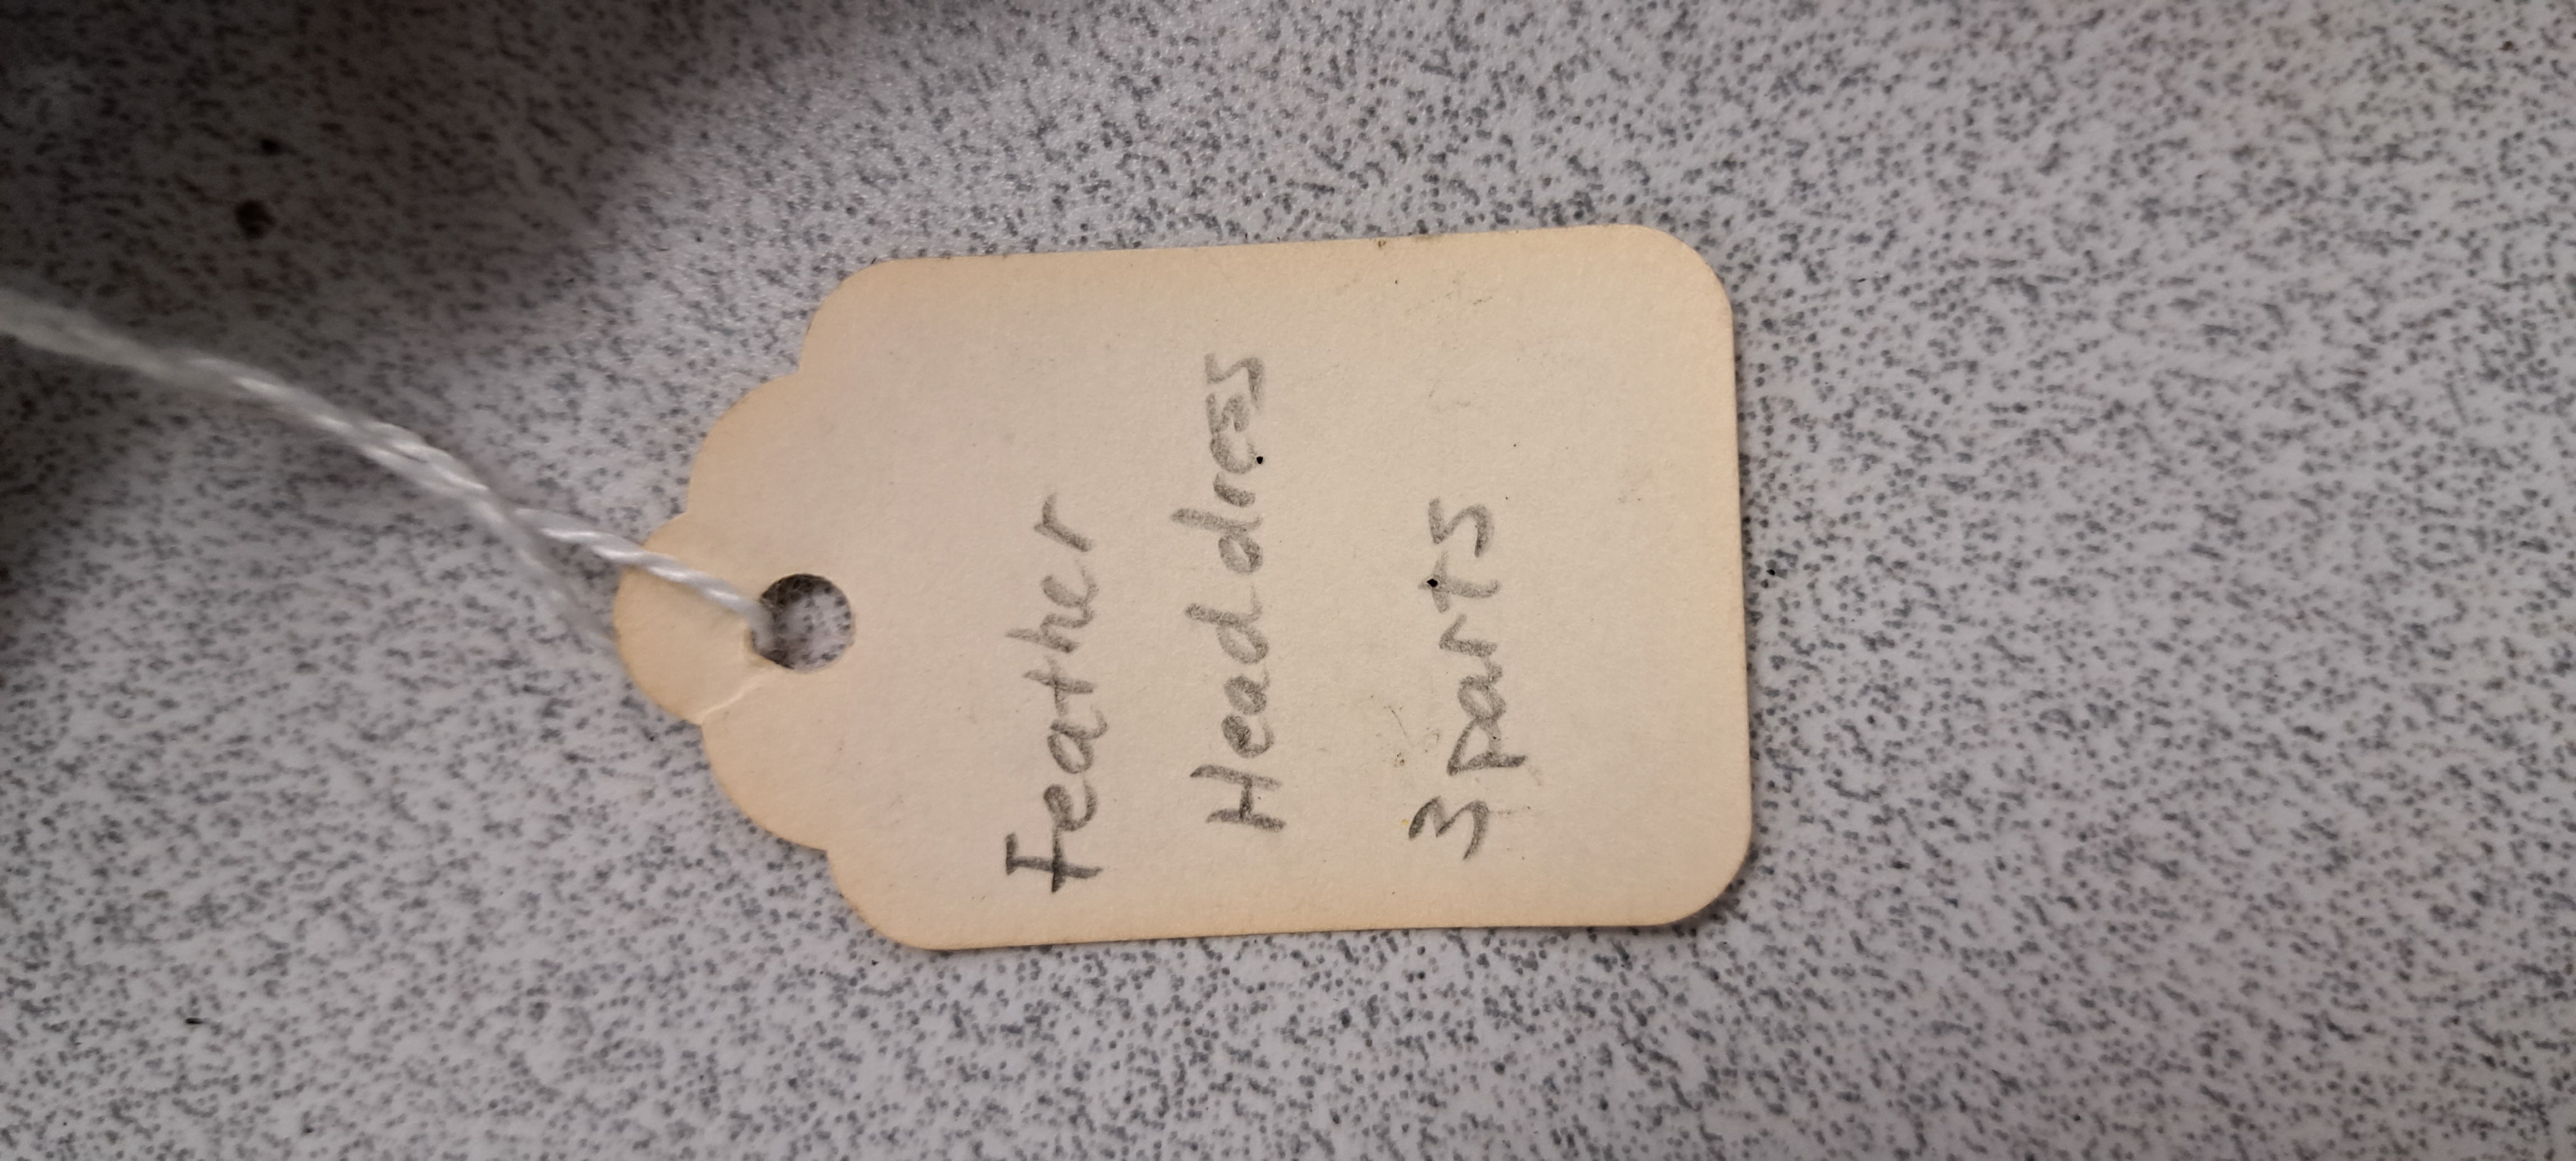 Feather
Headdress
3 parts